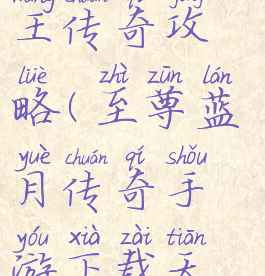 wáng chuán qí gōng
王传奇攻
lüè zhì zūn lán
略(至尊蓝
yuè chuán qí shǒu
月传奇手
yóu xià zài tiān
游下载天